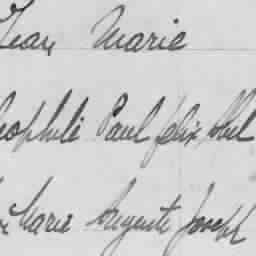 Jean Marie
éophile Paul félix Abel
Marie Auguste Joseph